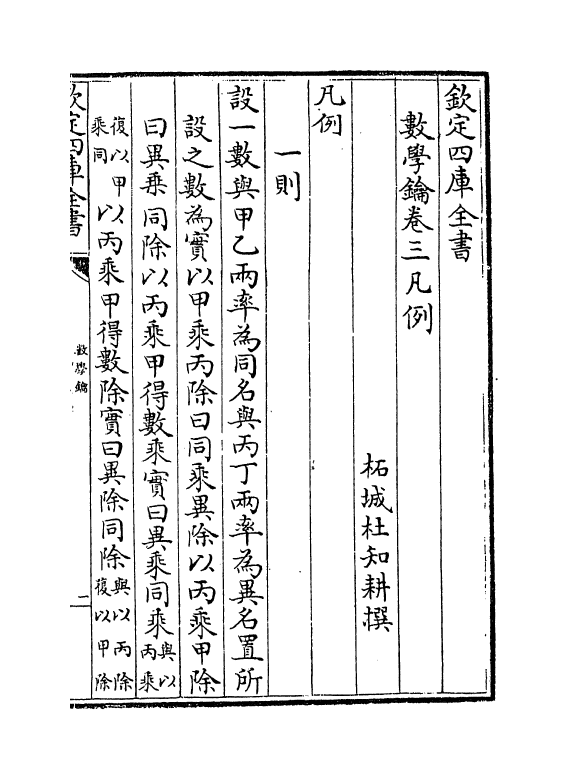 欽定四庫全書
數學鑰卷三凡例
柘城杜知耕撰
凡例
一則
設一數與甲乙兩率為同名與丙丁兩率為異名置所
設之數為實以甲乘丙除曰同乘異除以丙乘甲除
曰異乗同除以丙乘甲得數乘實曰異乘同乘與以丙乘
復以甲乘同以丙乘甲得數除實曰異除同除與以丙除復以甲除
欽定四庫全書
數學鑰